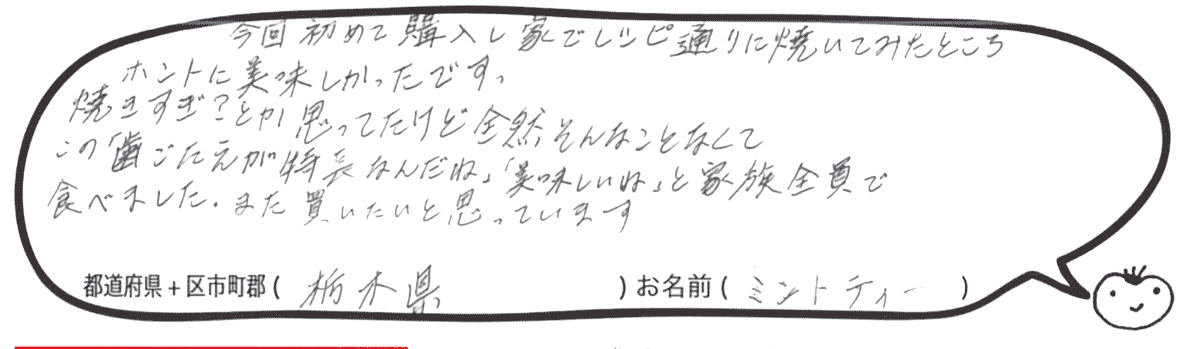 今回初めて購入し家でレシピ通りに焼いてみたところ
ホントに美味しかったです。
焼きすぎ?とか思ってたけど全然そんなことなくて
この「歯ごたえが特長なんだね」「美味しいね」と家族全員で
食べました。また買いたいと思っています
都道府県+区市町郡(栃木県)お名前(ミントティー)